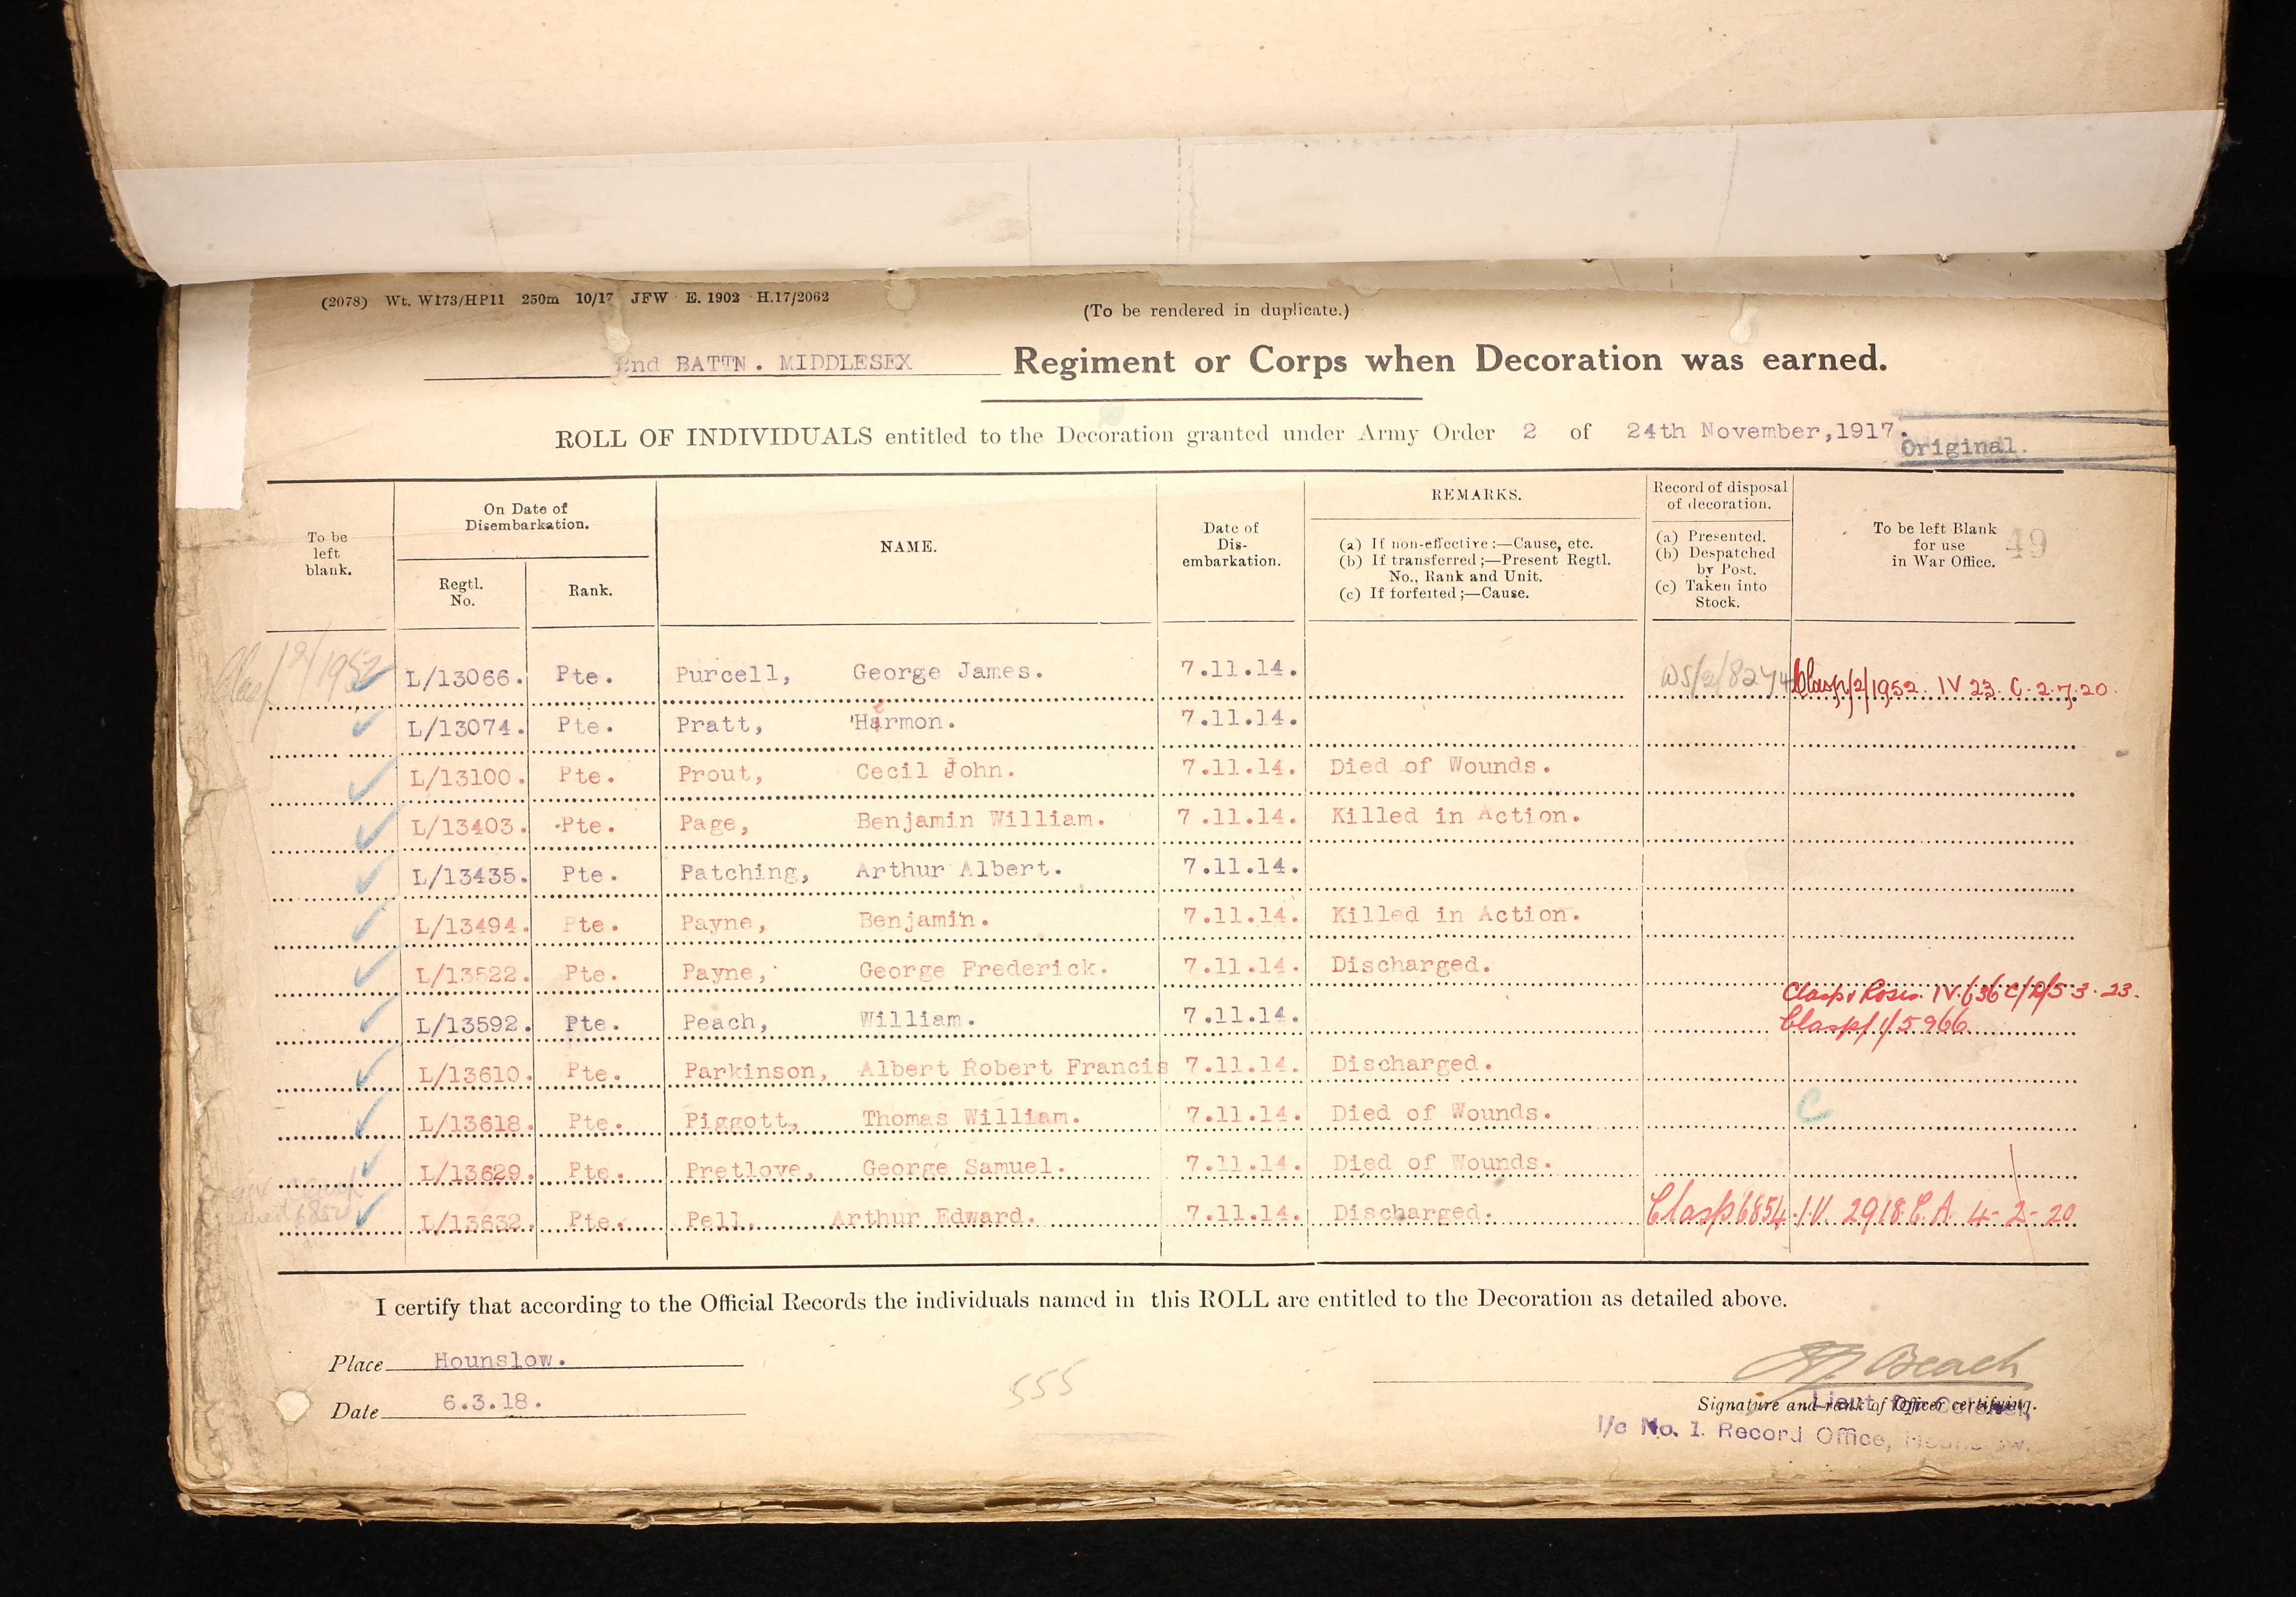 (2078) Wt. W173/HP11 250m 10/17 JFW E. 1902 H.17/2062
(To be rendered in duplicate.)
2nd BATTN. MIDDLESEX Regiment or Corps when Decoration was earned.
ROLL OF INDIVIDUALS entitled to the Decoration granted under Army Order 2 of 24th November, 1917.
Original.
To be left blank.
On Date of Disembarkation.
Regtl. No.
Rank.
NAME.
Date of Dis-embarkation.
REMARKS.
(a) If non-effective:—Cause, etc.
(b) If transferred;—Present Regtl. No., Rank and Unit.
(c) If forfeited;—Cause.
Record of disposal of decoration.
(a) Presented.
(b) Despatched by Post.
(c) Taken into Stock.
To be left Blank for use in War Office.
49
Clasp 12/1952 L/13066. Pte. Purcell, George James. 7.11.14. WS/2/8274 Clasp/2/1952. IV 23. C. 2.7.20.
L/13074. Pte. Pratt, Harmon. 7.11.14.
L/13100. Pte. Prout, Cecil John. 7.11.14. Died of Wounds.
L/13403. Pte. Page, Benjamin William. 7.11.14. Killed in Action.
L/13435. Pte. Patching, Arthur Albert. 7.11.14.
L/13494. Pte. Payne, Benjamin. 7.11.14. Killed in Action.
L/13522. Pte. Payne, George Frederick. 7.11.14. Discharged.
Clasp & Roses. IV/636 5.3.23.
L/13592. Pte. Peach, William. 7.11.14. Clasp/1/5966
L/13610. Pte. Parkinson, Albert Robert Francis 7.11.14. Discharged.
L/13618. Pte. Piggott, Thomas William. 7.11.14. Died of Wounds. C
L/13629. Pte. Pretlove, George Samuel. 7.11.14. Died of Wounds.
6854 L/13632. Pte. Pell, Arthur Edward. 7.11.14. Discharged. Clasp 6854. I.V. 2918. E.A. 4-2-20
I certify that according to the Official Records the individuals named in this ROLL are entitled to the Decoration as detailed above.
Place Hounslow.
Date 6.3.18.
555
Beach
Lieut. for Colonel,
Signature and rank of Officer certifying.
I/c No. 1. Record Office, Hounslow.